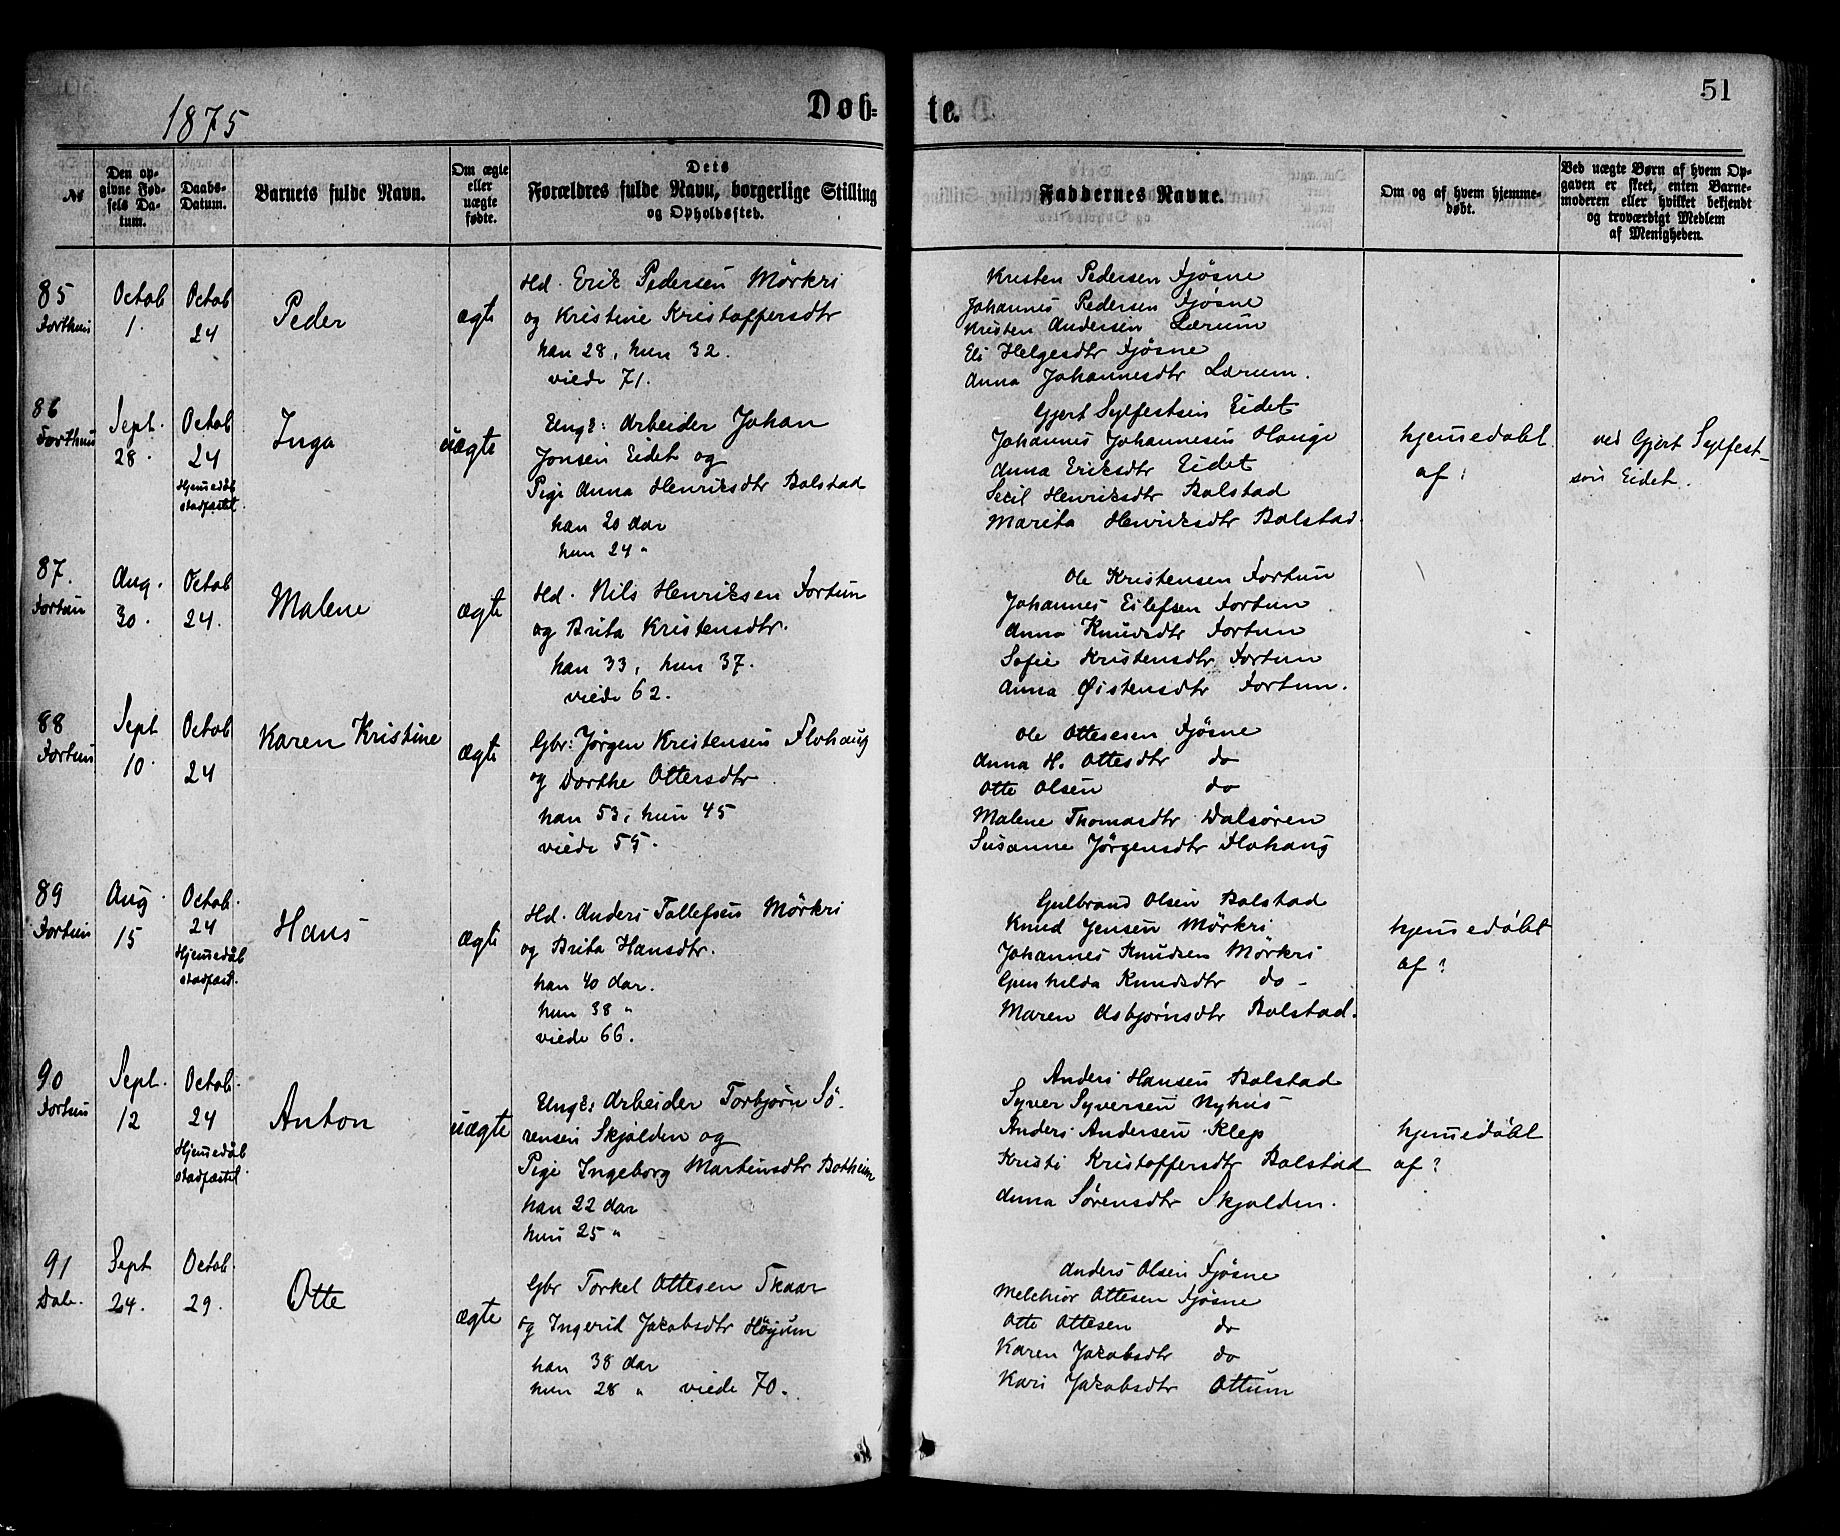 1875
Døb-
te.
51
№
Den op-
givne Fød-
sels Da-
tum.
Daabs-
Datum.
Barnets fulde Navn.
Om ægte
eller
uægte
fødte.
Dets
Forældres fulde Navn, borgerlige Stilling
og Opholdssted.
Faddernes Navne.
Om og af hvem hjemme-
døbt.
Ved uægte Børn af hvem Op-
gaven er skeet, enten Barne-
moderen eller hvilket bekjendt
og troværdigt Medlem
af Menigheden.
85
Forthun
Octob
1.
Octob
24
Peder
ægte
Hd. Erik Pedersen Mörkri
og Kristine Kristoffersdtr
han 28, hun 32.
viede 71.
Kristen Pedersen Fjösne
Johannes Pedersen Fjösne
Kristen Andersen Lærum
Eli Helgesdtr Fjösne
Anna Johannesdtr Lærum.
86
Forthun
Sept.
28.
Octob
24
Hjemedöb
stadfæstet.
Inga
uægte
Ungk: Arbeider Johan
Jonsen Eidet og
Pige Anna Henriksdtr Bolstad
han 20 Aar
hun 24 "
Gjert Sylfestsen Eidet
Johannes Johannesen Hauge
Anna Eriksdtr Eidet
Secil Henriksdtr Bolstad
Marita Henriksdtr Bolstad.
hjemedøbt
af ?
ved Gjert Sylfest-
søn Eidet.
87.
Fortun
Aug.
30.
Octob
24.
Malene
ægte
Hd. Nils Henriksen Fortun
og Brita Kristensdtr.
han 33, hun 37.
viede 62.
Ole Kristensen Fortun
Johannes Eilefsen Fortun
Anna Knudsdtr Fortun
Sofie Kristensdtr Fortun
Anna Øistensdtr Fortun.
88
Fortun
Sept
10.
Octob
24
Karen Kristine
ægte
Gbr: Jørgen Kristensen Flohaug
og Dorthe Ottersdtr
han 53, hun 45
viede 55.
Ole Ottesesen Fjösne
Anna H. Ottesdtr do
Otte Olsen do
Malene Thomasdtr Dalsören
Susanne Jørgensdtr Flohaug
89
Fortun
Aug
15
Octob.
24
Hjemedøb
stadfæst.
Hans
ægte
Hd. Anders Tollefsen Mörkri
og Brita Hansdtr.
han 40 Aar.
hun 38 "
viede 66.
Gulbrand Olsen Bolstad
Knud Jensen Mörkri
Johannes Knudsen Mörkri
Gunhilda Knudsdtr do -
Maren Asbjørnsdtr Bolstad.
hjemedøbt
af ?
90
Fortun
Sept.
12
Octob.
24
Hjemedøb
stadfæstet
Anton
uægte
Ungk: Arbeider Torbjørn Sö-
rensen Skjolden og
Pige Ingeborg Martinsdtr Botheim
han 22 Aar
hun 25 "
Anders Hansen Bolstad
Syver Syversen Nyhus
Anders Andersen Klep
Kristi Kristoffersdtr Bolstad
Anna Sörensdtr Skjolden.
hjemedøbt
af ?
91
Dale.
Sept
24.
Octob.
29.
Otte
ægte
Gbr Torkel Ottesen Skaar
og Ingerid Jakobsdtr Höyum
han 38 Aar
hun 28 " viede 70.
Anders Olsen Fjösne
Melchior Ottesen Fjösne
Otte Ottesen do
Karen Jakobsdtr do
Kari Jakobsdtr Ottum